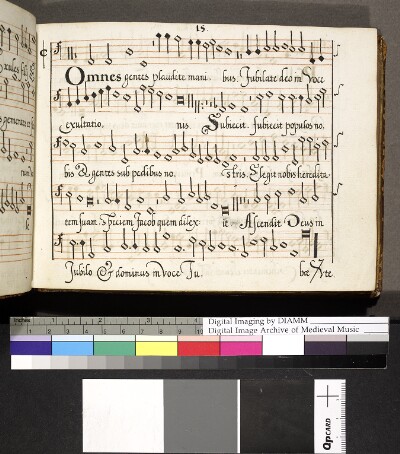 15.
Omnes gentes plaudete mani bus. Jubilate deo in Voce
exultatio. nis. Subiecit. subiecit populos no.
bis & gentes sub pedibus no. stris. Elegit nobis heredita.
tem suam. Speciem Jacob quem dilex. it. Ascendit Deus in
Jubilo & dominus in voce Tu. bæ
Inches
Digital Imaging by DIAMM
Digital Image Archive of Medieval Music
QPCARD